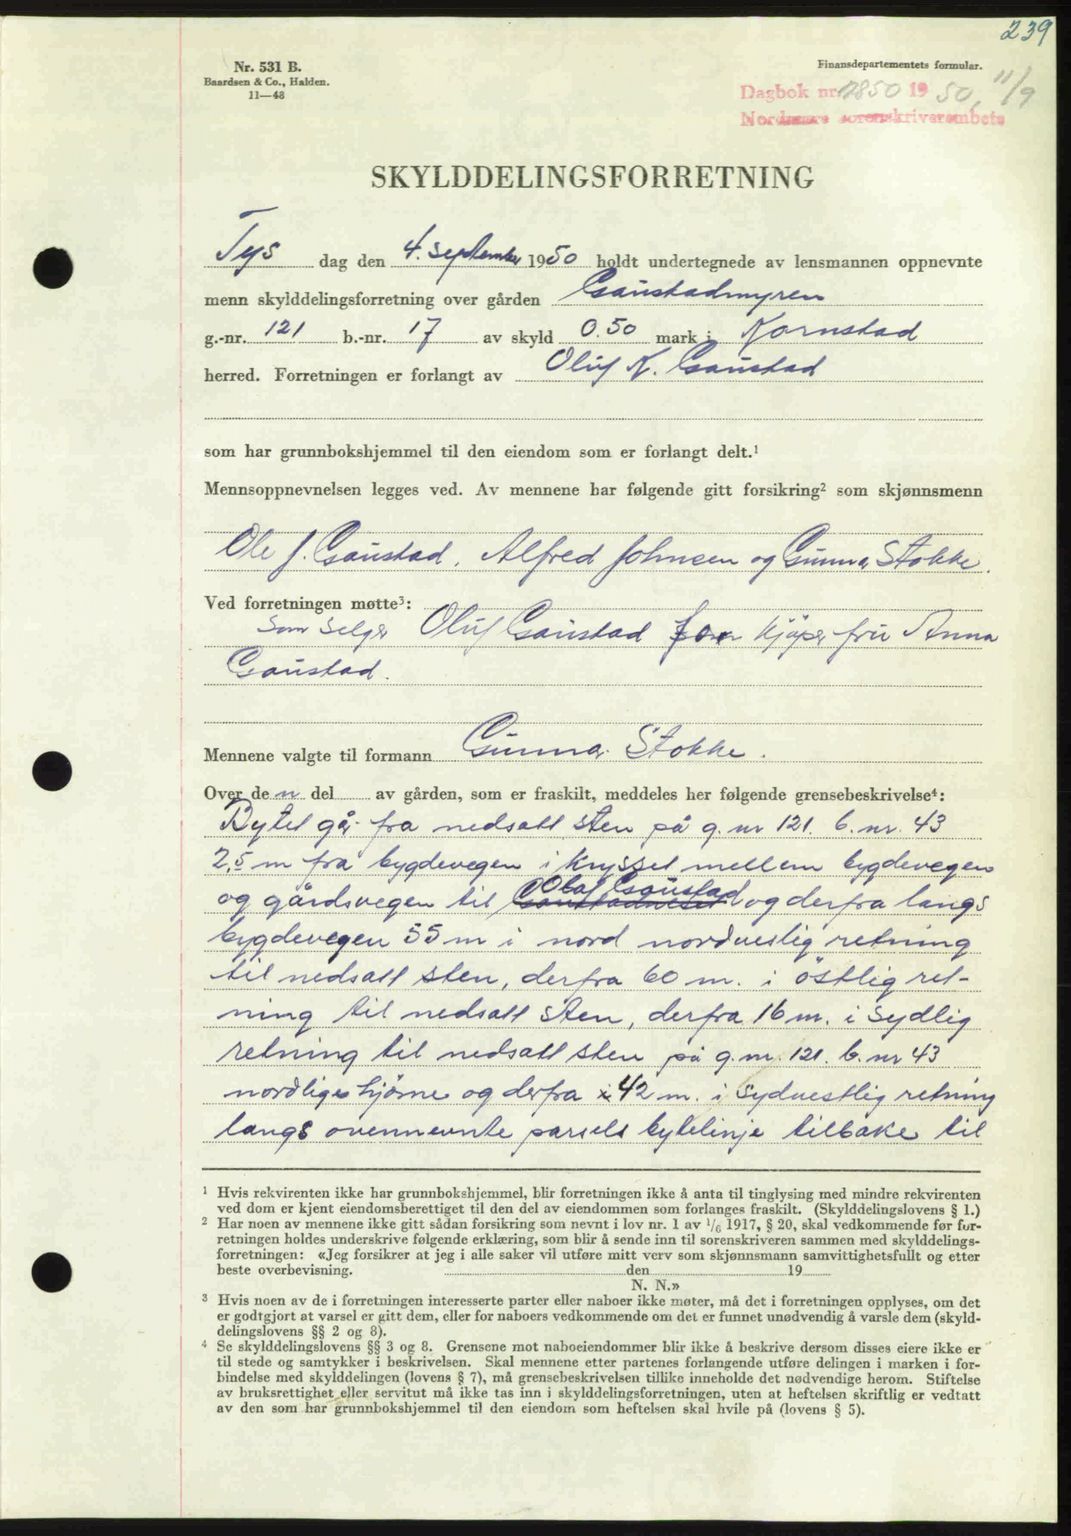 239
Nr. 531 B.
Baardsen & Co., Halden.
11—48
Finansdepartementets formular.
Dagbok nr. 2850 1950, 11/9
Nordmøre sorenskriverembete
SKYLDDELINGSFORRETNING
Tys dag den 4. september 1950 holdt undertegnede av lensmannen oppnevnte
menn skylddelingsforretning over gården Gaustadmyren
g.-nr. 121 b.-nr. 17 av skyld 0.50 mark i Kornstad
herred. Forretningen er forlangt av Oluf K. Gaustad
som har grunnbokshjemmel til den eiendom som er forlangt delt.¹
Mennsoppnevnelsen legges ved. Av mennene har følgende gitt forsikring² som skjønnsmenn
Ole J. Gaustad, Alfred Johnsen og Gunnar Stokke.
Ved forretningen møtte³:
Som Selger Oluf Gaustad for Kjøper fru Anna
Gaustad.
Mennene valgte til formann Gunnar Stokke.
Over den del av gården, som er fraskilt, meddeles her følgende grensebeskrivelse⁴:
Bytet går fra nedsatt sten på g. nr 121. b. nr. 43
2,5 m fra bygdevegen i krysset mellem bygdevegen
og gårdsvegen til Olaf Gaustad og derfra langs
bygdevegen 55 m i nord nordvestlig retning
til nedsatt sten, derfra 60 m. i östlig ret-
ning til nedsatt sten, derfra 16 m. i sydlig
retning til nedsatt sten på g. nr. 121. b. nr 43
nordlige hjörne og derfra 42 m. i sydvestlig retning
langs ovennevnte parsels bytelinje tilbake til
¹ Hvis rekvirenten ikke har grunnbokshjemmel, blir forretningen ikke å anta til tinglysing med mindre rekvirenten
ved dom er kjent eiendomsberettiget til den del av eiendommen som forlanges fraskilt. (Skylddelingslovens § 1.)
² Har noen av mennene ikke gitt sådan forsikring som nevnt i lov nr. 1 av 1/6 1917, § 20, skal vedkommende før for-
retningen holdes underskrive følgende erklæring, som blir å sende inn til sorenskriveren sammen med skylddelings-
forretningen: «Jeg forsikrer at jeg i alle saker vil utføre mitt verv som skjønnsmann samvittighetsfullt og etter
beste overbevisning. den 19
N. N.»
³ Hvis noen av de i forretningen interesserte parter eller naboer ikke møter, må det i forretningen opplyses, om det
er godtgjort at varsel er gitt dem, eller for naboers vedkommende om det er funnet unødvendig å varsle dem (skyld-
delingslovens §§ 2 og 8).
⁴ Se skylddelingslovens §§ 3 og 8. Grensene mot naboeiendommer blir ikke å beskrive dersom disses eiere ikke er
til stede og samtykker i beskrivelsen. Skal mennene etter partenes forlangende utføre delingen i marken i for-
bindelse med skylddelingen (lovens § 7), må grensebeskrivelsen tillike inneholde det nødvendige herom. Stiftelse
av bruksrettighet eller servitut må ikke tas inn i skylddelingsforretningen, uten at heftelsen skriftlig er vedtatt
av den som har grunnbokshjemmel til den eiendom som heftelsen skal hvile på (lovens § 5).